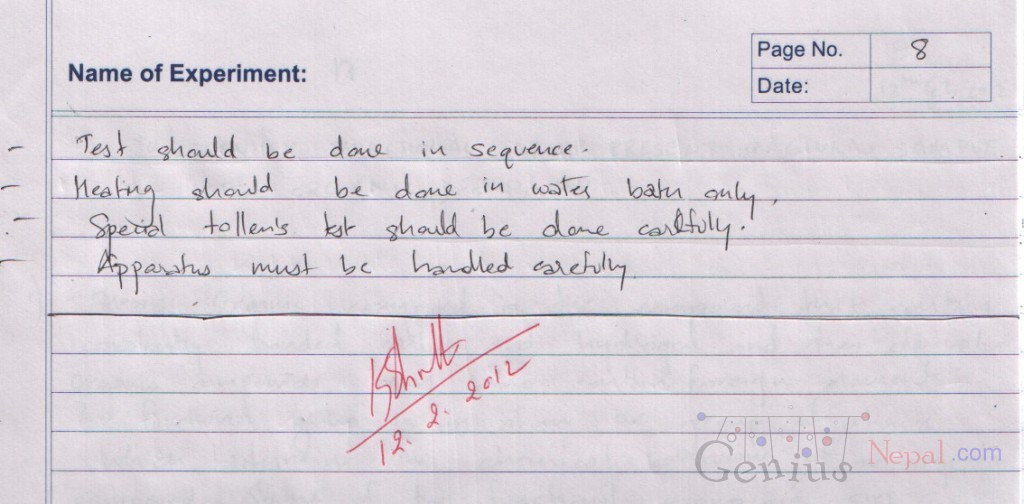 Page No. 8
Name of Experiment:
Date:
- Test should be done in sequence.
- Heating should be done in water bath only.
- Special tollen's test should be done carefully.
- Apparatus must be handled carefully.
12.2.2012
Genius Nepal.com